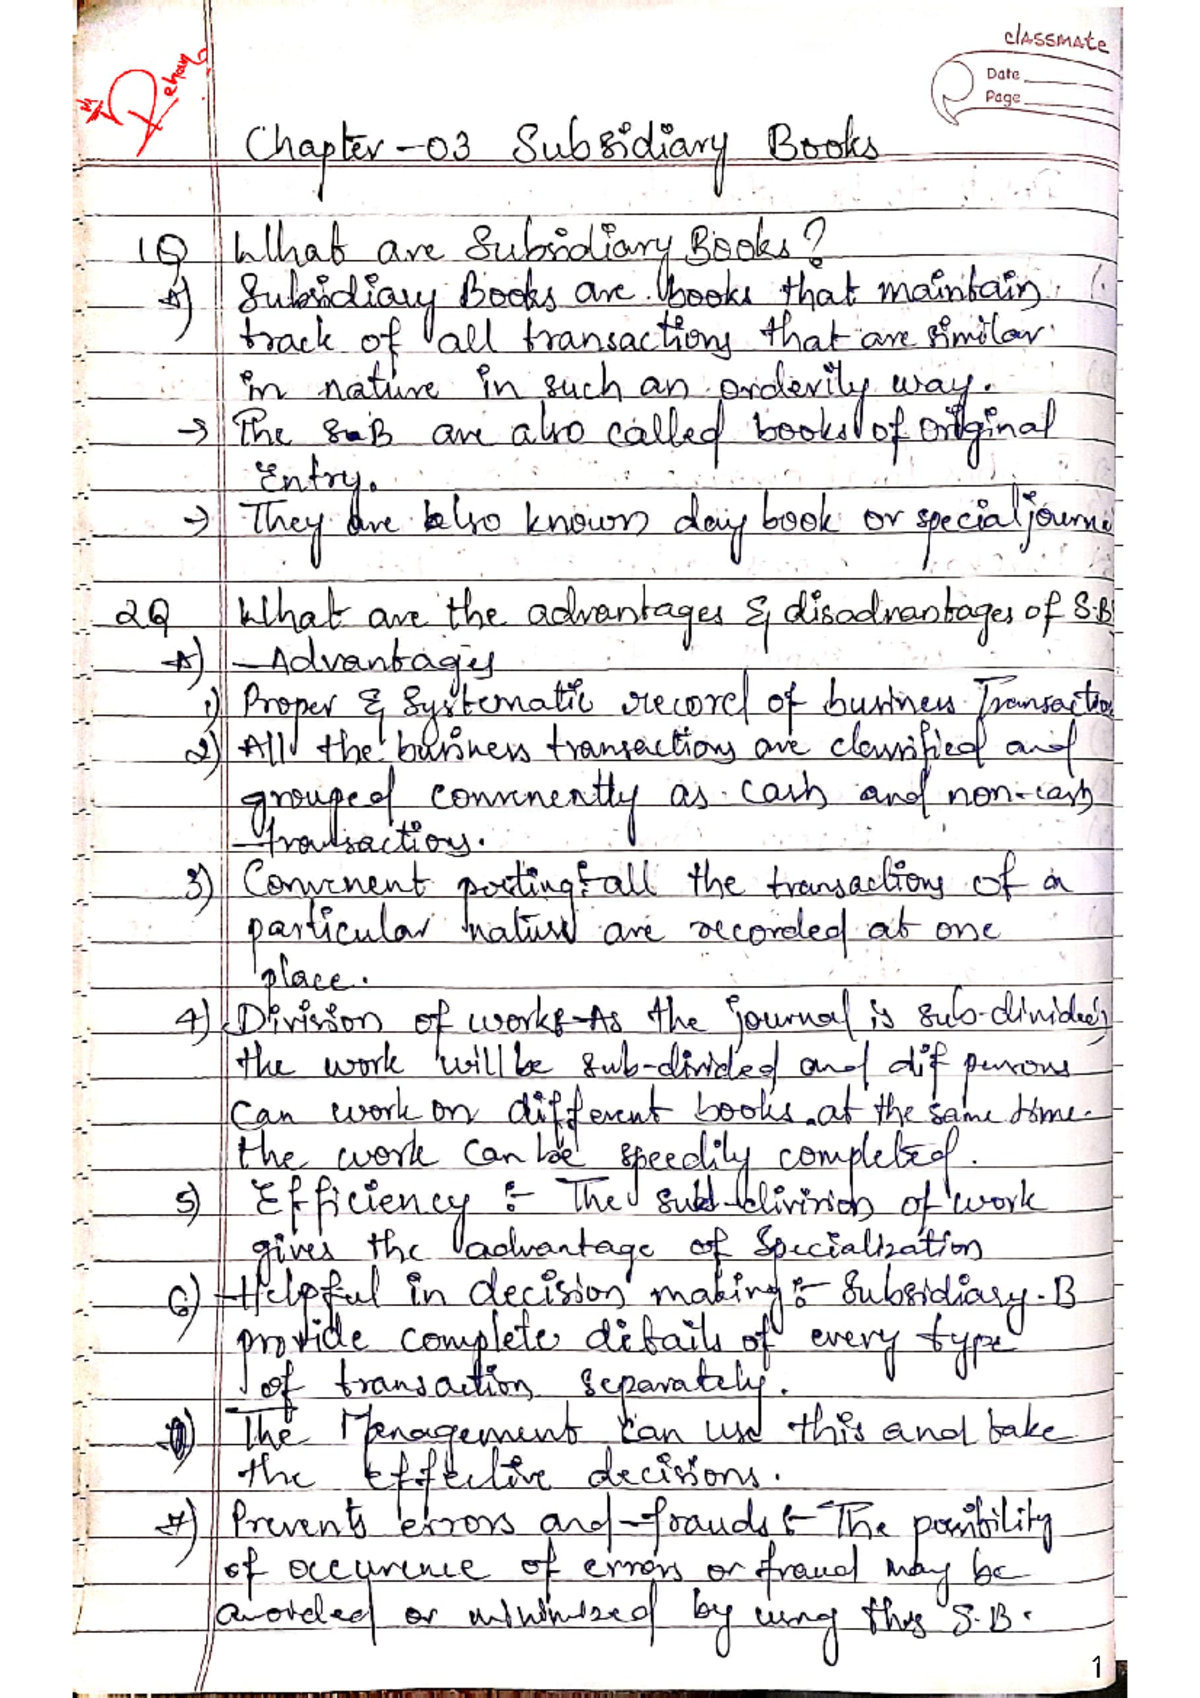 classmate
Date
Page
Rehan
Chapter-03 Subsidiary Books
1Q What are Subsidiary Books?
A) Subsidiary Books are books that maintain
track of all transactions that are similar
in nature in such an orderily way.
→ The S.B are also called books of original
Entry.
→ They are also known day book or special journe
2Q What are the advantages & disadvantages of S.B
A) - Advantages
1) Proper & Systematic record of business Transactio
2) All the business transactions are classified and
grouped convenently as cash and non-cash
transactions.
3) Convenent posting:- all the transactions of a
particular nature are recorded at one
place.
4) Division of works- As the journal is sub-divided,
the work will be sub-divided and dif persons
can work on different books at the same time.
the work can be speedily completed.
5) Efficiency :- The sub-division of work
gives the advantage of Specialization
6) Helpful in decision making :- Subsidiary.B
provide complete details of every type
of transaction separately.
The Menagement can use this and take
the effective decisions.
7) Prevents errors and frauds :- The possibility
of occurence of errors or fraud may be
avoided or minimized by using this S.B.
1